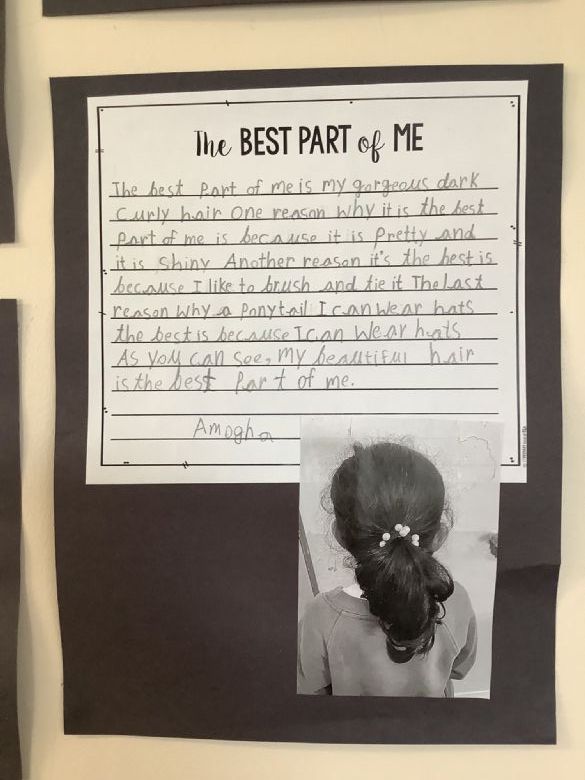 The BEST PART of ME
The best Part of me is my gorgeous dark
Curly hair One reason Why it is the best
Part of me is because it is Pretty and
it is Shiny Another reason it's the best is
because I like to brush and tie it The Last
reason Why a Ponytail I can wear hats
the best is because I can Wear hats
As you can see, my beautiful hair
is the best Part of me.
Amogha